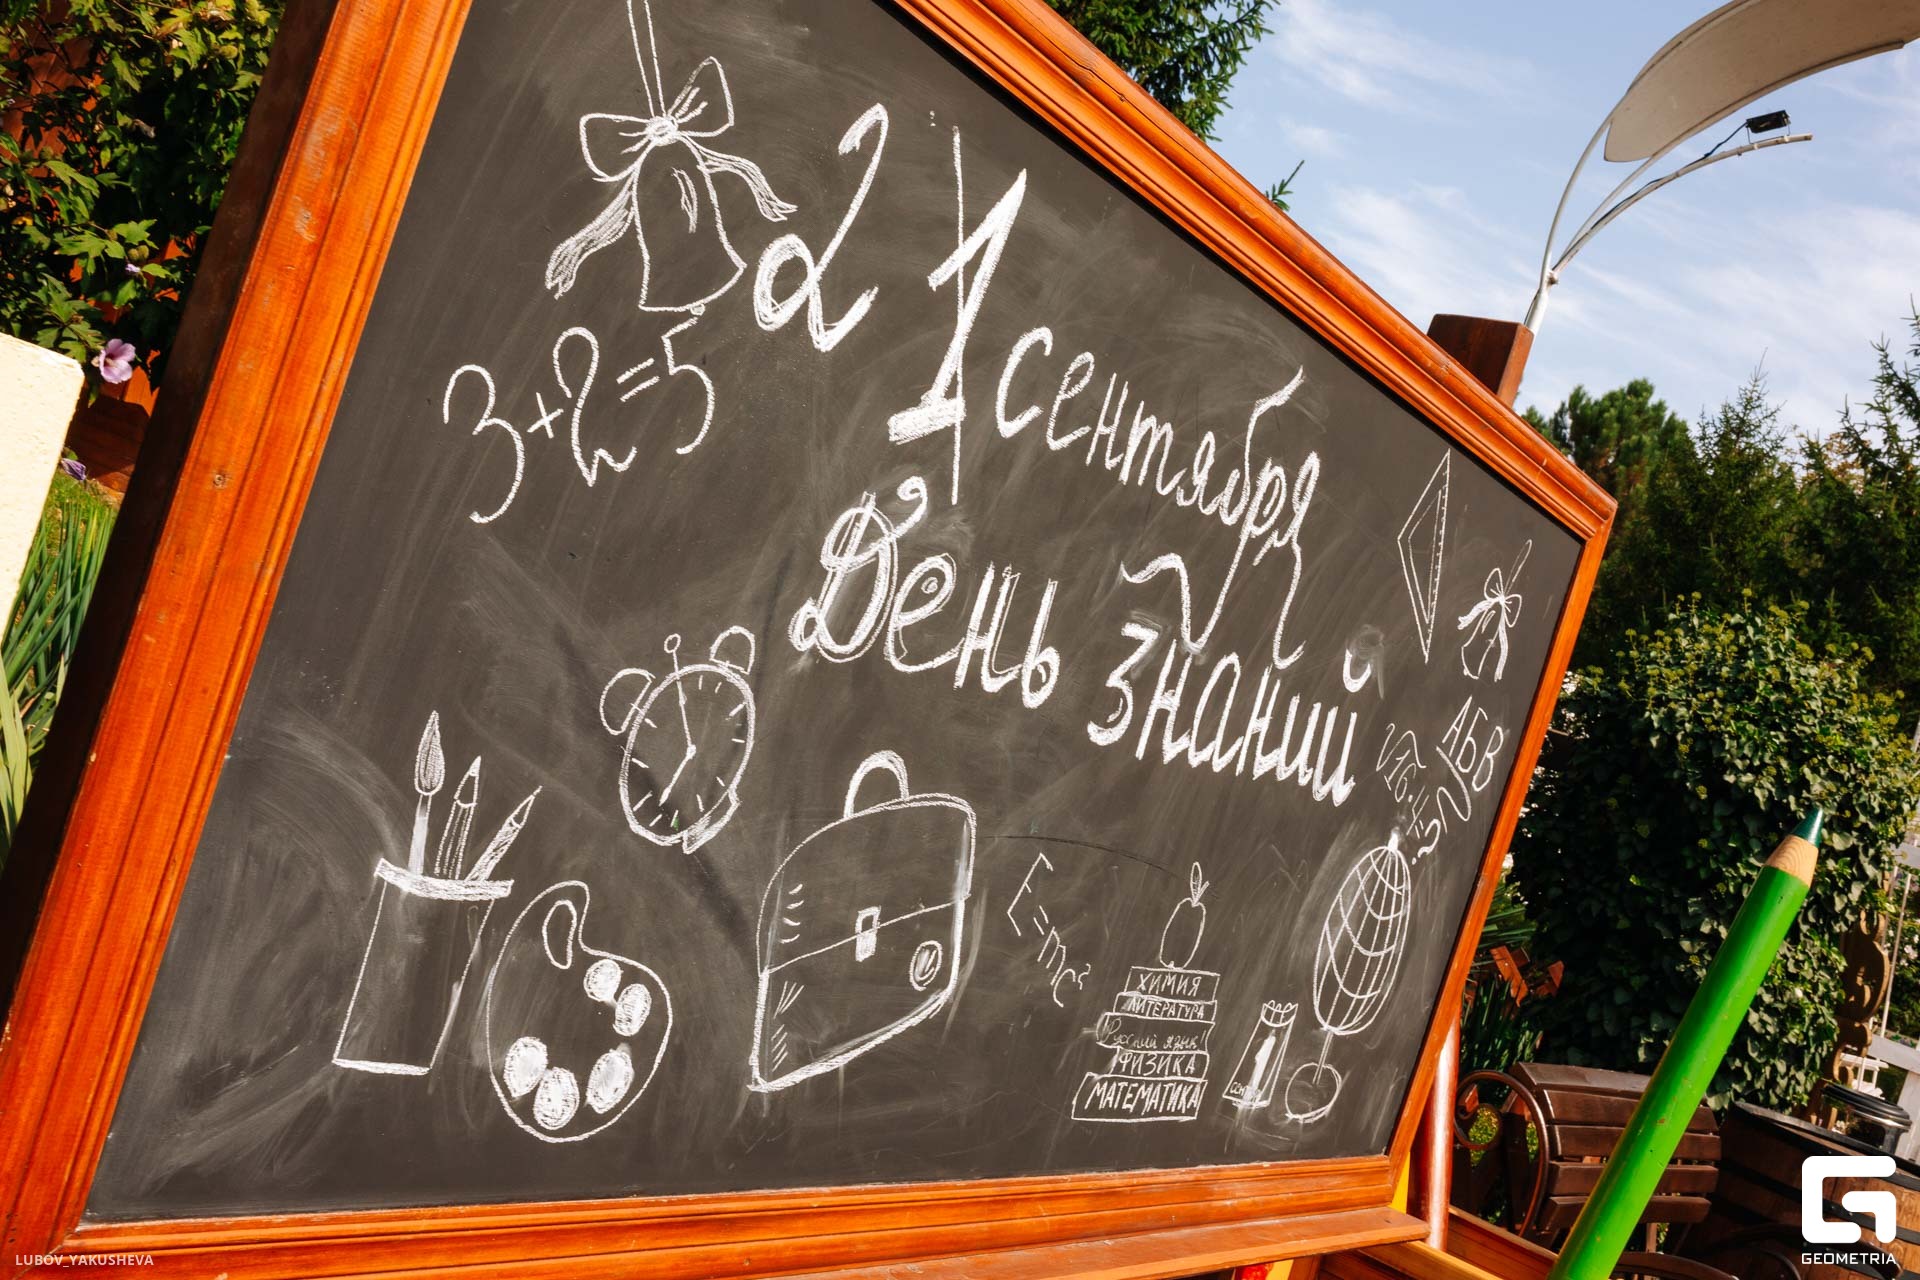 2 1 сентября
3+2=5
День знаний
АБВ
E=mc²
ХИМИЯ
ЛИТЕРАТУРА
Русский язык
ФИЗИКА
МАТЕМАТИКА
1
LUBOV_YAKUSHEVA
GEOMETRIA